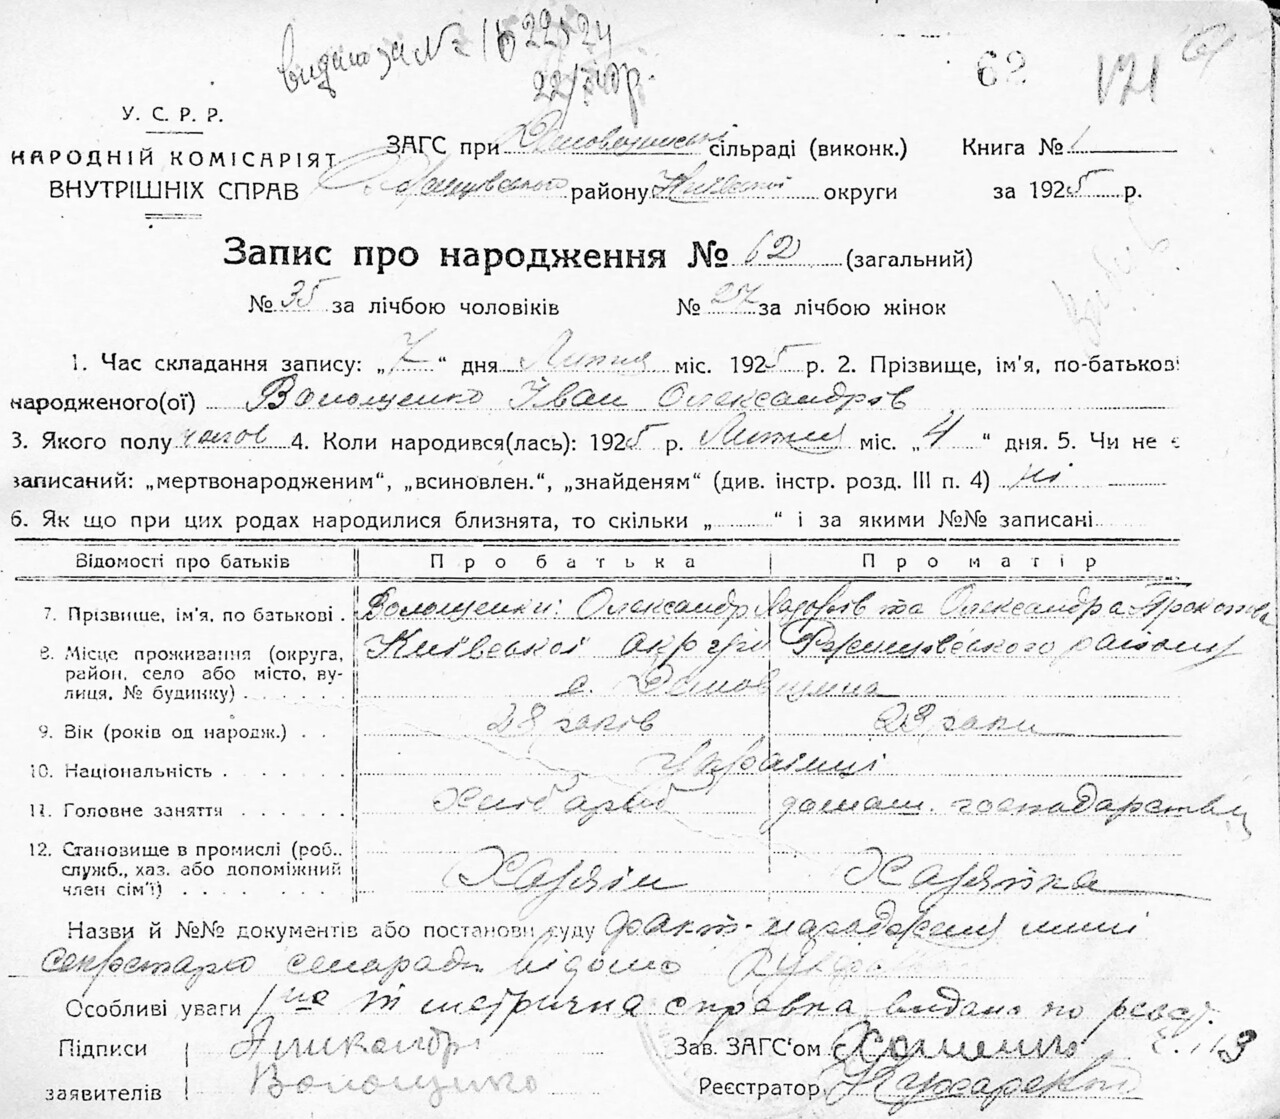 видано за №
62
У. С. Р. Р.
НАРОДНІЙ КОМІСАРІЯТ
ВНУТРІШНІХ СПРАВ
ЗАГС при сільраді (виконк.) Книга № 1
району Київської округи за 1925 р.
Запис про народження № 62 (загальний)
№ 35 за лічбою чоловіків № 27 за лічбою жінок
1. Час складання запису: „7“ дня Лютня міс. 1925 р. 2. Прізвище, ім'я, по-батькові
народженого(ої) Волощенко Іван Олександрів
3. Якого полу чолов 4. Коли народився(лась): 1925 р. Лютня міс. „4“ дня. 5. Чи не є
записаний: „мертвонародженим“, „всиновлен.“, „знайденям“ (див. інстр. розд. III п. 4) ні
6. Як що при цих родах народилися близнята, то скільки „ “ і за якими №№ записані
Відомості про батьків Про батька Про матір
7. Прізвище, ім'я, по батькові . Волощенки: Олександр та Олександра
8. Місце проживання (округа, Київської округи Ржищівського району
район, село або місто, ву- с. Демовщина
лиця, № будинку) . . . . .
9. Вік (років од народж.) . . 28 років 23 роки
10. Національність . . . . . . Українці
11. Головне заняття . . . . . . Хлібороб домаш. господарство
12. Становище в промислі (роб.,
служб., хаз. або допоміжний Хазяїн Хазяйка
член сім'ї) . . . . . . .
Назви й №№ документів або постанови суду факт народження
секретарю сельради відомо
Особливі уваги метрична справка видана по реєст.
Підписи Зав. ЗАГС'ом
заявителів Волощенко Реєстратор